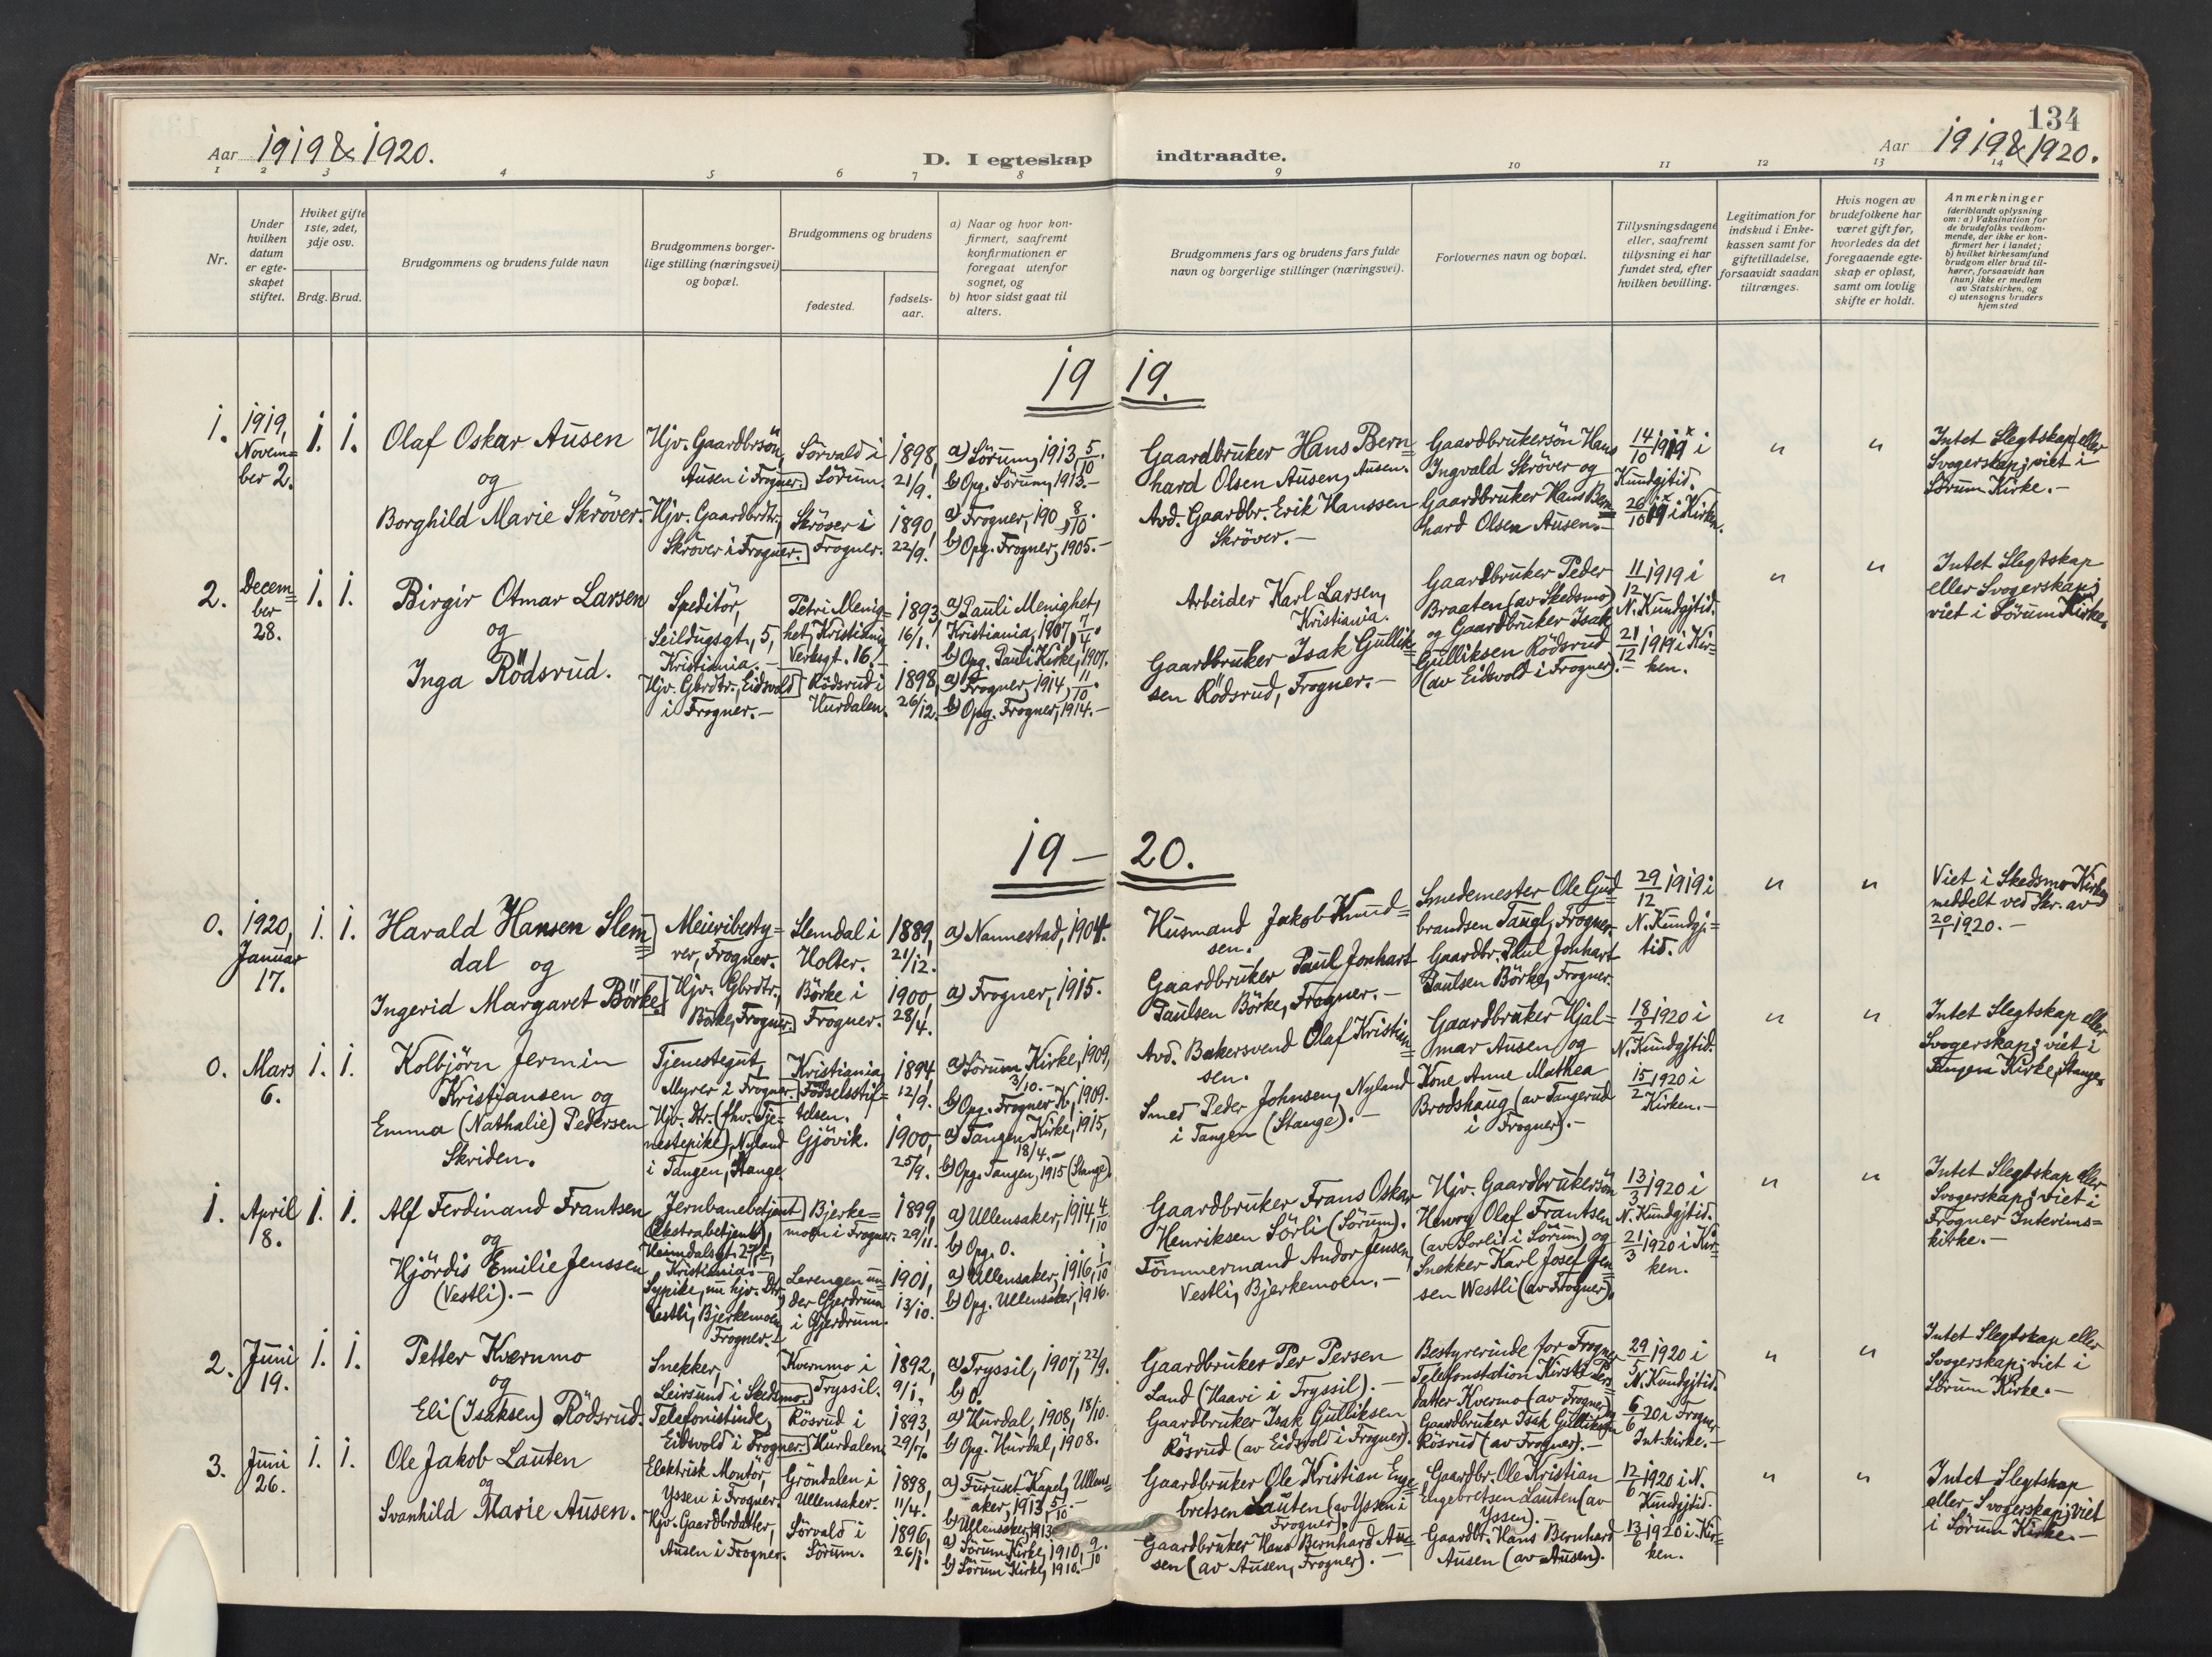 134
Aar 1919 & 1920.
D. I egteskap indtraadte.
Aar 1919 & 1920.
1 2 3 4 5 6 7 8 9 10 11 12 13 14
Nr.
Under
hvilken
datum
er egte-
skapet
stiftet.
Hviket gifte
1ste, 2det,
3dje osv.
Brdg. Brud.
Brudgommens og brudens fulde navn
Brudgommens borger-
lige stilling (næringsvei)
og bopæl.
Brudgommens og brudens
fødested.
fødsels-
aar.
a) Naar og hvor kon-
firmert, saafremt
konfirmationen er
foregaat utenfor
sognet, og
b) hvor sidst gaat til
alters.
Brudgommens fars og brudens fars fulde
navn og borgerlige stillinger (næringsvei).
Forlovernes navn og bopæl.
Tillysningsdagene
eller, saafremt
tillysning ei har
fundet sted, efter
hvilken bevilling.
Legitimation for
indskud i Enke-
kassen samt for
giftetilladelse,
forsaavidt saadan
tiltrænges.
Hvis nogen av
brudefolkene har
været gift før,
hvorledes da det
foregaaende egte-
skap er opløst,
samt om lovlig
skifte er holdt.
Anmerkninger
(deriblandt oplysning
om: a) Vaksination for
de brudefolks vedkom-
mende, der ikke er kon-
firmert her i landet;
b) hvilket kirkesamfund
brudgom eller brud til-
hører, forsaavidt han
(hun) ikke er medlem
av Statskirken, og
c) utensogns bruders
hjemsted
19 19.
1.
1919,
Novem=
ber 2.
1. 1.
Olaf Oskar Ausen
og
Borghild Marie Skröver.
Hjv. Gaardbrsön,
Ausen i Frogner.
Hjv. Gaardbrdtr.,
Skröver i Frogner.
Sörvald i
Sörum.
Skröver i
Frogner.
1898,
21/9.
1890,
22/9.
a) Sörum, 1913, 5/10.
b) Opg. Sörum, 1913.-
a) Frogner, 190 , 8/10.
b) Opg. Frogner, 1905.-
Gaardbruker Hans Bern=
hard Olsen Ausen, Ausen.
Avd. Gaardbr. Erik Hanssen
Skröver.-
Gaardbrukersön Hans
Ingvald Skröver og
Gaardbruker Hans Bern=
hard Olsen Ausen.-
14/10 1919 i
Kundgjtid.
26/10 19 i Kirken.
" "
Intet Slegtskap eller
Svogerskap; viet i
Sörum Kirke.-
2.
Decem=
ber
28.
1. 1.
Birgir Otmar Larsen
og
Inga Rödsrud.
Speditör,
Seildugsgt. 5,
Kristiania.-
Hjv. Gbrdtr., Eidsvold
i Frogner.-
Petri Menig=
het, Kristiania,
Verksgt. 16.
Rödsrud i
Hurdalen.
1893,
16/1.
1898,
26/12.
a) Pauli Menighet,
Kristiania, 1907, 7/4.
b) Opg. Pauli Kirke, 1907.
a) Frogner, 1914, 11/10.
b) Opg. Frogner, 1914.-
Arbeider Karl Larsen,
Kristiania.
Gaardbruker Isak Gullik=
sen Rödsrud, Frogner.-
Gaardbruker Peder
Braaten (av Skedsmo)
og Gaardbruker Isak
Gulliksen Rödsrud
(av Eidsvold i Frogner).-
11/12 1919 i
N. Kundgjtid.
21/12 1919 i Kir=
ken.
" "
Intet Slegtskap
eller Svogerskap;
viet i Sörum Kirke.
19 — 20.
0.
1920,
Januar
17.
1. 1.
Harald Hansen Slem=
dal og
Ingerid Margaret Börke.
Meieribesty=
rer, Frogner.
Hjv. Gbrdtr.,
Börke, Frogner.
Slemdal i
Holter.
Börke i
Frogner.
1889,
21/12.
1900,
28/4.
a) Nannestad, 1904.
a) Frogner, 1915.
Husmand Jakob Knud=
sen.
Gaardbruker Paul Jonhart
Paulsen Börke, Frogner.-
Smedemester Ole Gud=
brandsen Taugl, Frogner.
Gaardbr. Paul Jonhart
Paulsen Börke, Frogner.
29/12 1919 i
N. Kundgj.=
tid.
" "
Viet i Skedsmo Kirke,
meddelt ved Skr. av
20/1 1920.-
0.
Mars
6.
1. 1.
Kolbjörn Jermin
Kristjansen og
Emma (Nathalie) Pedersen
Skriden.
Tjenestegut,
Myrer i Frogner.
Hjv. Dtr. (fhv. Tje=
nestepike), Nyland
i Tangen, Stange
Kristiania
Födselsstif=
telsen.
Gjövik.
1894,
12/9.
1900,
25/9.
a) Sörum Kirke, 1909,
3/10.-
b) Opg. Frogner K., 1909.
a) Tangen Kirke, 1915,
18/4.-
b) Opg. Tangen, 1915 (Stange).
Avd. Bakersvend Olaf Kristian=
sen.
Smed Peder Johnsen, Nyland
i Tangen (Stange).-
Gaardbruker Hjal=
mar Ausen og
Kone Anne Mathea
Brodshaug (av Tangerud
i Frogner).-
18/2 1920 i
N. Kundgjtid.
15/2 1920 i
Kirken.-
" "
Intet Slegtskap eller
Svogerskap; viet i
Tangen Kirke, Stange.
1.
April
18.
1. 1.
Alf Ferdinand Frantsen
og
Hjördis Emilie Jenssen
(Vestli).-
Jernbanebetjent
(Ekstrabetjent),
Heimdalsgt. 27 b,
Kristiania.-
Sypike, nu hjv. Dtr.,
Vestli, Bjerkemoen,
Frogner.-
Bjerke=
moen i Frogner.
Lerengen un=
der Gjerdrum
i Gjerdrum.
1899,
29/11.
1901,
13/10.
a) Ullensaker, 1914, 4/10
b) Opg. 0.
a) Ullensaker, 1916, 1/10
b) Opg. Ullensaker, 1916.
Gaardbruker Frans Oskar
Henriksen Sörli (Sörum).
Tömmermand Andor Jensen,
Vestli, Bjerkemoen.-
Hjv. Gaardbrukersön
Henry Olaf Frantsen
(av Sorli i Sörum) og
Snekker Karl Josef Jen=
sen Westli (av Frogner).
13/3 1920 i
N. Kundgjtid.
21/3 1920 i Kir=
ken.
" "
Intet Slegtskap eller
Svogerskap; viet i
Frogner Interims=
kirke.-
2.
Juni
19.
1. 1.
Petter Kvernmo
og
Eli (Isaksen) Rödsrud.
Snekker,
Leirsund i Skedsmo.
Telefonistinde,
Eidsvold i Frogner.
Kvernmo i
Tryssil.
Rösrud i
Hurdalen.
1892,
9/1.
1893,
a) Tryssil, 1907, 22/9.
b) 0.
a) Hurdal, 1908, 18/10.
b) Opg. Hurdal, 1908.
Gaardbruker Per Persen
Land (Haavi i Tryssil).-
Gaardbruker Isak Gulliksen
Rösrud (av Eidsvold i Frogner).
Bestyrerinde for Frogner
Telefonstation Kirsti Pers=
datter Kvermo (av Frogner) og
Gaardbruker Isak Gulliksen
Rösrud (av Frogner).-
29/5 1920 i
N. Kundgjtid.
6/6 20 i Frogner
Int.kirke.-
" "
Intet Slegtskap eller
Svogerskap; viet i
Sörum Kirke.-
3.
Juni
26.
1. 1.
Ole Jakob Lauten
og
Svanhild Marie Ausen.
Elektrisk Montör,
Yssen i Frogner.
Hjv. Gaardbrdatter,
Ausen i Frogner.
Gröndalen i
Ullensaker.
Sörvald i
Sörum.
1898,
11/4.
1896,
26/1.
a) Furuset Kapel, Ullens=
aker, 1913, 5/10.-
b) Ullensaker, 1913
a) Sörum Kirke, 1910, 9/10.
b) Sörum Kirke, 1910.-
Gaardbruker Ole Kristian Enge=
bretsen Lauten (av Yssen i
Frogner).-
Gaardbruker Hans Bernhard Au=
sen (av Ausen, Frogner).-
Gaardbr. Ole Kristian
Engebretsen Lauten (av
Yssen).-
Gaardbr. Hans Bernhard
Ausen (av Ausen).-
12/6 1920 i N.
Kundgjtid.
13/6 1920 i Kir=
ken.
" "
Intet Slegtskap
eller Svogerskap; viet
i Sörum Kirke.-